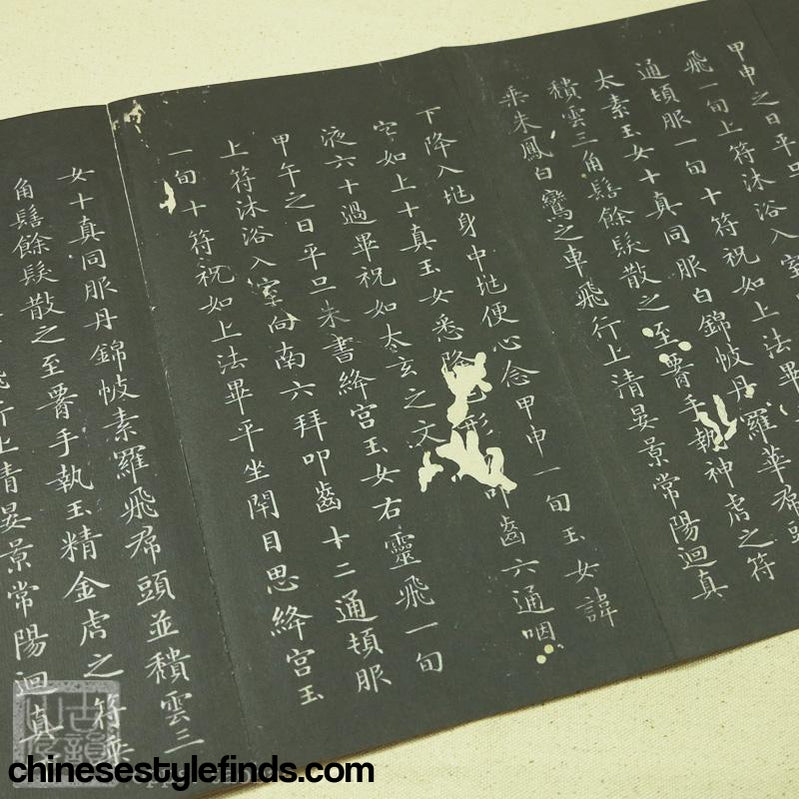 甲申之日平旦
飛一旬上符沐浴入室
通頓服一旬十符祝如上法畢
太素玉女十真同服白錦帔丹羅華帬頭
積雲三角髻餘髮散之至署手執神虎之符
乘朱鳳白鸞之車飛行上清晏景常陽迴真
下降入㘴身中㘴便心念甲申一旬玉女諱
字如上十真玉女悉降 形 叩齒六通咽
液六十過畢祝如太玄之文
甲午之日平旦朱書絳宮玉女右靈飛一旬
上符沐浴入室向南六拜叩齒十二通頓服
一旬十符祝如上法畢平坐閇目思絳宮玉
女十真同服丹錦帔素羅飛帬頭並積雲三
角髻餘髮散之至署手執玉精金虎之符乘
飛行上清晏景常陽迴真
chinesestylefinds.com